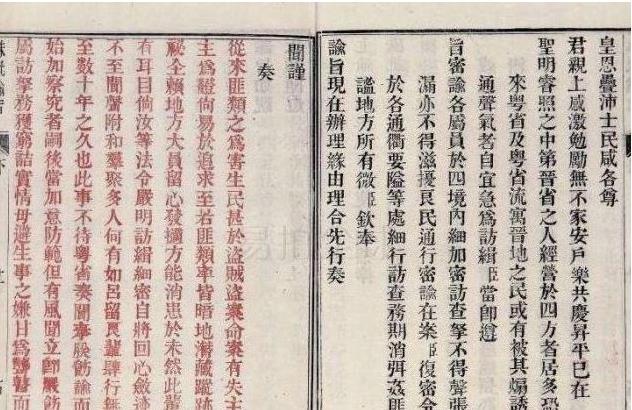 皇恩疊沛士民咸各尊
君親上感激勉勵無不家安戶樂共慶昇平已在
聖明睿照之中第晉省之人經營於四方者居多恐
來粵省及粵省流寓晉地之民或有被其煽誘
通聲氣者自宜急為訪緝臣當卽遵
旨密諭各屬員於四境內細加密訪查拏不得聲張
漏亦不得滋擾良民通行密諭在案臣復密
於各通衢要隘等處細行訪查務期消弭姦匪
謐地方所有微臣欽奉
諭旨現在辦理緣由理合先行奏
聞謹
奏
從來匪類之爲害生民甚於盜賊盜案命案有失主
主爲證尚易於追求至若匪類率皆暗地潛藏蹤跡
秘全賴地方大員留心發擿方能消患於未然此輩
有耳目倘汝等法令嚴明訪緝細密自將回心斂跡
不至聞聲附和羣聚多人何有如呂留良輩肆行無
至數十年之久也此事不待粵省奏聞朕飭諭而
始加察究者嗣後當加意防範但有風聞立卽嚴飭
屬訪拏務獲窮詰實情毋避生事之嫌甘爲聾瞽而